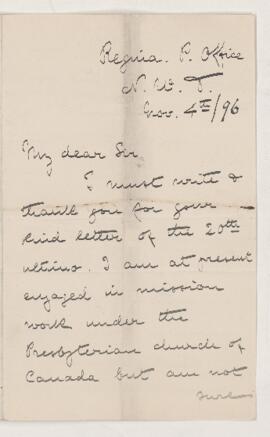 Regina. P. Office
N. W. T.
Nov. 4th/96
My dear Sir,
I must write &
thank you for your
kind letter of the 20th
ultimo. I am at present
engaged in mission
work under the
Presbyterian church of
Canada but am not